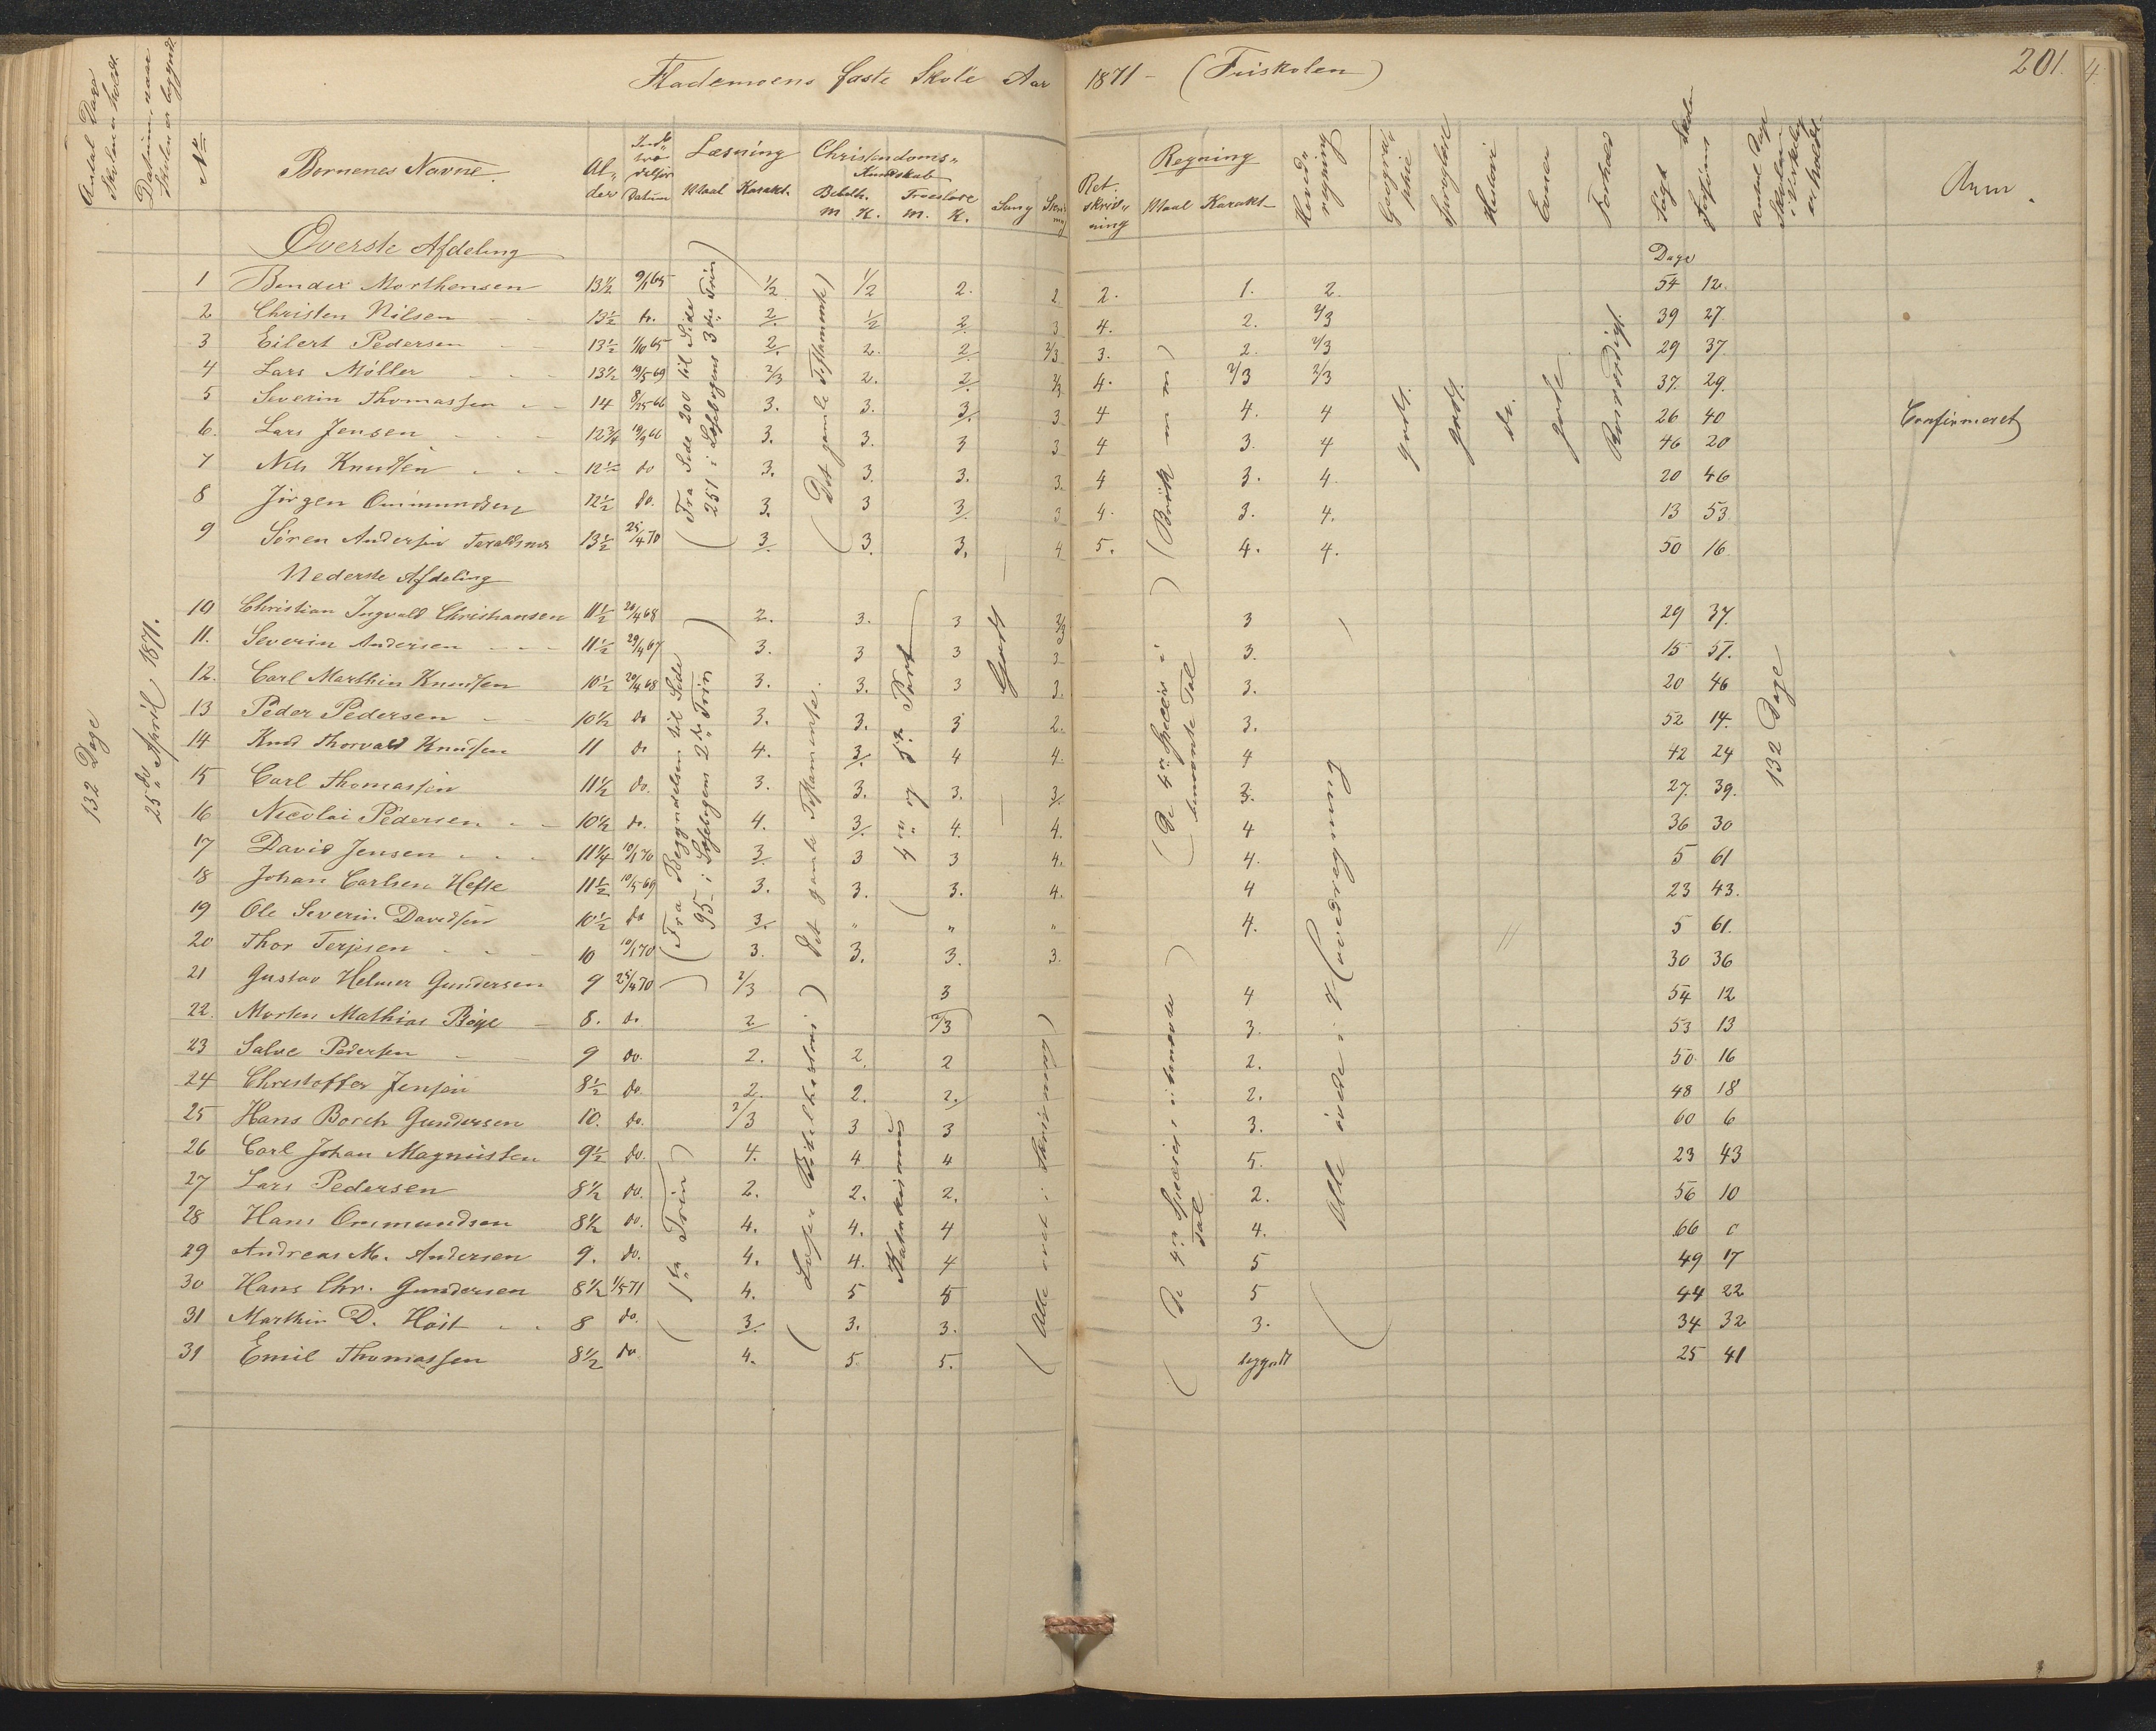 faste Skole Aar 1871 - (Friskolen) 201.
Antal Dage Skolen er holdt.
Datum, naar Skolen er begyndt.
No Børnenes Navne. Alder Datum Læsning Maal Karakt. Christendoms Kundskab Bibelh. M K. Troeslære M. K. Sang Skrivning Retskrivning Regning Maal Karakt. Hovedregning Geografie Historie Evner Forhold Søgt Forsømt Skolen Antal Dage Skolen i Virkelig er holdt. Anm.
132 Dage
25de April 1871.
Øverste Afdeling Dage
1 Bendix Morthensen 13½ 9/1 65 ½ ½ 2. 2. 2. 1. 2. 54 12.
2 Christen Nilsen 13½ do. 2. ½ 2 3 4. 2. 2/3 39 27
3 Eilert Pedersen 13½ 1/10 65 2. 2. 2 2/3 3. 2. 2/3 29 37.
4 Lars Møller 13½ 19/5 69 2/3 2. 2. 2/3 4. 2/3 2/3 37. 29.
5 Severin Thomassen 14 8/25 66 3. 3. 3. 3 4 4. 4 26 40 Confirmeret
6. Lars Jensen 12¾ 19/9 66 3. 3. 3 3 4 3. 4 46 20
7 Nils Knudsen 12½ do 3. 3. 3. 3. 4 3. 4. 20 46
8 Jørgen Ommundsen 12½ do. 3. 3 3. 3 4. 3. 4. 13 53
9 Søren Andersen 13½ 25/4 70 3. 3. 3. 4 5. 4. 4. 50 16
(Fra Side 200 til Side 251 i Læsebogens 3die Trin)
(Det gamle Testamente)
(Brøk m m)
godt. godt. do. gode
Nederste Afdeling
10 Christian Ingvald Christiansen 11½ 20/4 68 2. 3. 3 2/3 3 29 37.
11. Severin Andersen 11½ 29/4 67 3. 3 3 3 3. 15 51.
12. Carl Marthin Knudsen 10½ 20/4 68 3. 3. 3 3. 3. 20 46
13 Peder Pedersen 10½ do 3. 3. 3 2. 3. 52 14.
14 Knud Thorvald Knudsen 11 do 4. 3. 4 4. 4 42 24
15 Carl Thomassen 11½ do. 3. 3. 3. 3. 3. 27. 39.
16 Nicolai Pedersen 10½ do. 4. 3. 4. 4. 4 36 30
17 David Jensen 11¼ 10/1 70 3. 3 3 4. 4. 5 61
18 Johan Carlsen Hefte 11½ 10/5 69 3. 3. 3. 4. 4 23 43.
19 Ole Severin Davidsen 10½ do 3. " " " 4. 5 61.
20 Thor Terjesen 10 10/1 70 3. 3. 3. 3. 30 36
21 Gustav Helmer Gundersen 9 25/4 70 2/3 3 4 54 12
22. Morten Mathias Bøye 8. do 2 2/3 3. 53 13
23 Salve Pedersen 9 do. 2. 2. 2 2. 50 16
24 Christoffer Jensen 8½ do 2. 2. 2. 2. 48 18
25 Hans Borch Gundersen 10. do. 2/3 3 3 3. 60 6
26 Carl Johan Magnussen 9½ do. 4. 4 4 5. 23 43
27 Lars Pedersen 8½ do. 2. 2. 2. 2. 56 10
28 Hans Ommundsen 8½ do. 4. 4. 4 4. 66 0
29 Andreas M. Andersen 9. do. 4. 4. 4 5 49 17
30 Hans Chr. Gundersen 8½ 1/5 71 4. 5 5 5 44 22
31 Marthin D. Høst 8 do. 3. 3. 3. 3. 34 32
31 Emil Thomassen 8½ do 4. 5. 5. begyndt 25 41
(Fra Begyndelsen til Side 95 i Læsebogens 2det Trin)
(1ste Trin)
Det gamle Testamente.
Katekismus
4de og 5te Part
Godt
(Alle øvet i Skrivning)
(De 4re Species i benævnte Tal)
(De 4re Species i ubenævnte Tal)
(Alle øvede i Hovedregning
132 Dage